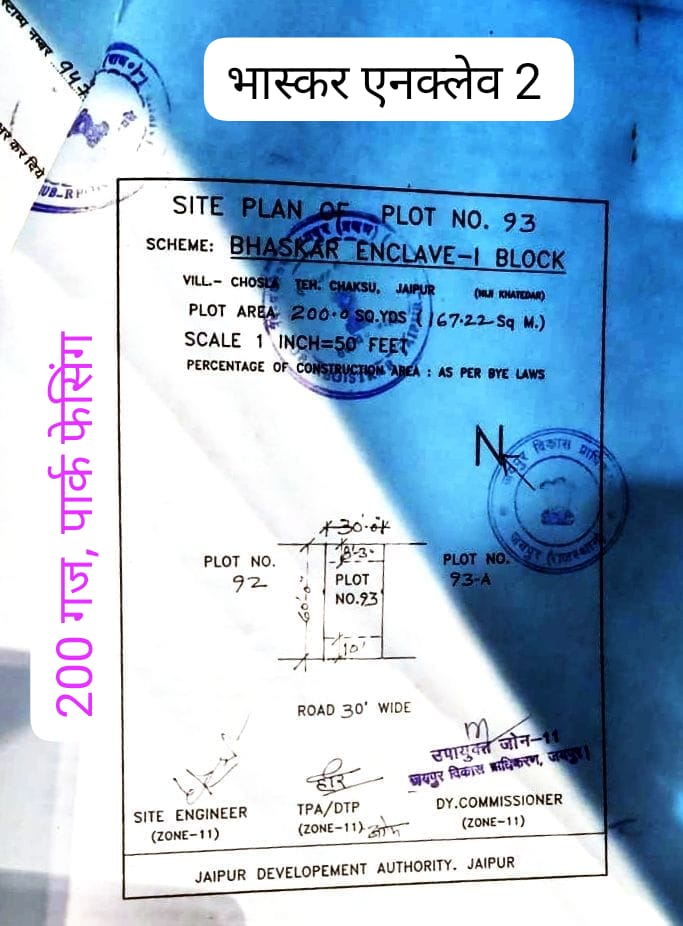 स्टाम्प नम्बर 947
भास्कर एनक्लेव 2
SITE PLAN OF PLOT NO. 93
SCHEME: BHASKAR ENCLAVE-I BLOCK
VILL.- CHOSLA TEH. CHAKSU, JAIPUR (NIJI KHATEDAR)
PLOT AREA 200.0 SQ.YDS (167.22 Sq M.)
SCALE 1 INCH=50 FEET
PERCENTAGE OF CONSTRUCTION AREA : AS PER BYE LAWS
200 गज, पार्क फेसिंग
N
जयपुर विकास
जयपुर (राजस्थान)
30'-0"
8'-3"
60'-0"
PLOT NO.
92
PLOT
NO.93
PLOT NO.
93-A
10'
ROAD 30' WIDE
उपायुक्त जोन-11
जयपुर विकास प्राधिकरण, जयपुर।
SITE ENGINEER
(ZONE-11)
TPA/DTP
(ZONE-11)
DY.COMMISSIONER
(ZONE-11)
JAIPUR DEVELOPEMENT AUTHORITY. JAIPUR